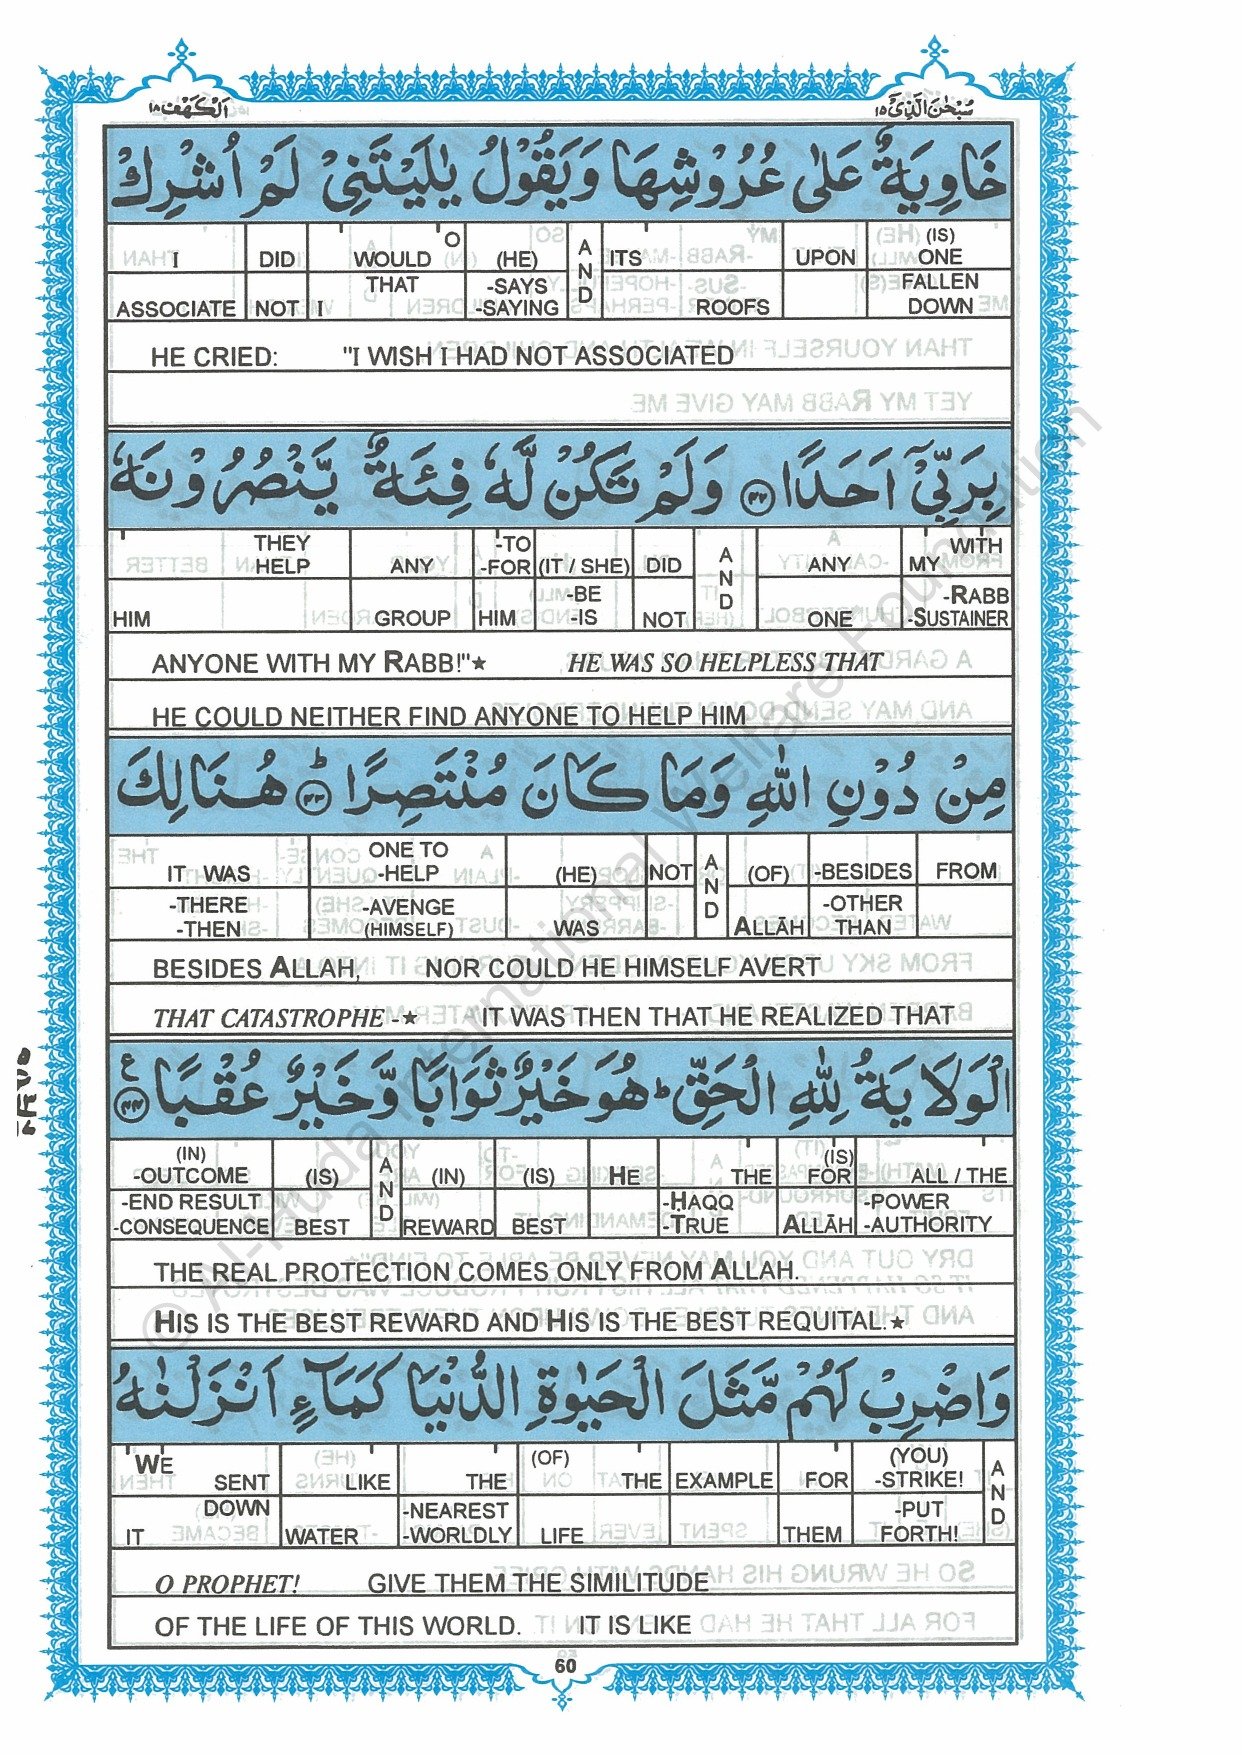 اَلْكَهْف ١٨
سُبْحٰنَ الَّذِيْ ١٥
خَاوِيَةٌ عَلٰى عُرُوْشِهَا وَيَقُوْلُ يٰلَيْتَنِيْ لَمْ اُشْرِكْ
I DID WOULD O (HE) AND ITS UPON (IS) ONE
ASSOCIATE NOT I THAT -SAYS -SAYING ROOFS FALLEN DOWN
HE CRIED: "I WISH I HAD NOT ASSOCIATED
بِرَبِّيْٓ اَحَدًا ۝٤٢ وَلَمْ تَكُنْ لَّهٗ فِئَةٌ يَّنْصُرُوْنَهٗ
THEY HELP ANY -TO -FOR (IT / SHE) DID AND ANY MY WITH
HIM GROUP HIM -BE -IS NOT ONE -RABB -SUSTAINER
ANYONE WITH MY RABB!"★ HE WAS SO HELPLESS THAT
HE COULD NEITHER FIND ANYONE TO HELP HIM
مِنْ دُوْنِ اللّٰهِ وَمَا كَانَ مُنْتَصِرًا ۝٤٣ؕ هُنَالِكَ
IT WAS ONE TO -HELP (HE) NOT AND (OF) -BESIDES FROM
-THERE -THEN -AVENGE (HIMSELF) WAS ALLĀH -OTHER THAN
BESIDES ALLAH, NOR COULD HE HIMSELF AVERT
THAT CATASTROPHE -★ IT WAS THEN THAT HE REALIZED THAT
الْوَلَايَةُ لِلّٰهِ الْحَقِّ ؕ هُوَ خَيْرٌ ثَوَابًا وَّخَيْرٌ عُقْبًا ۝٤٤ ع
(IN) -OUTCOME (IS) AND (IN) (IS) HE THE (IS) FOR ALL / THE
-END RESULT -CONSEQUENCE BEST REWARD BEST -ḤAQQ -TRUE ALLĀH -POWER -AUTHORITY
THE REAL PROTECTION COMES ONLY FROM ALLAH.
HIS IS THE BEST REWARD AND HIS IS THE BEST REQUITAL.★
وَاضْرِبْ لَهُمْ مَّثَلَ الْحَيٰوةِ الدُّنْيَا كَمَآءٍ اَنْزَلْنٰهُ
WE SENT LIKE THE (OF) THE EXAMPLE FOR (YOU) -STRIKE! AND
IT DOWN WATER -NEAREST -WORLDLY LIFE THEM -PUT FORTH!
O PROPHET! GIVE THEM THE SIMILITUDE
OF THE LIFE OF THIS WORLD. IT IS LIKE
60
© Al-Huda International Welfare Foundation